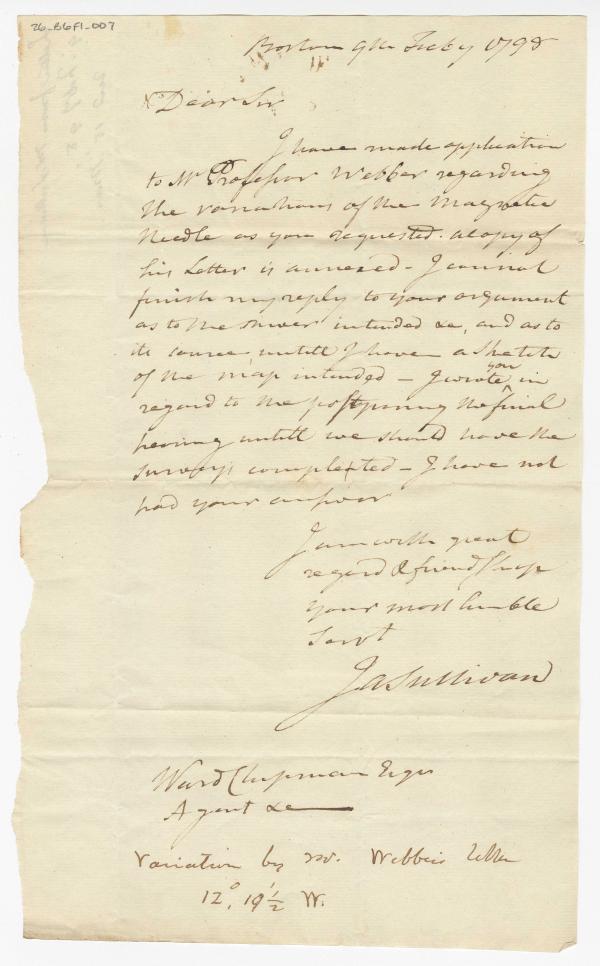 26_B6F1_007
Boston 9th Feby 1798
Dear Sir
I have made application
to Mr Professor Webber regarding
the variations of the Magnetic
Needle as you requested. a copy of
his Letter is annexed - I cannot
finish my reply to your argument
as to the river intended &c, and as to
its source, untill I have a Sketch
of the map intended - I wrote you in
regard to the postponing the final
hearing untill we should have the
surveys completed - I have not
had your answer
I am with great
regard & friendship
your most humble
Servt
Ja Sullivan
Ward Chipman Esqr
Agent &c
Variation by Mr. Webbers letter
12°, 19'½ W.